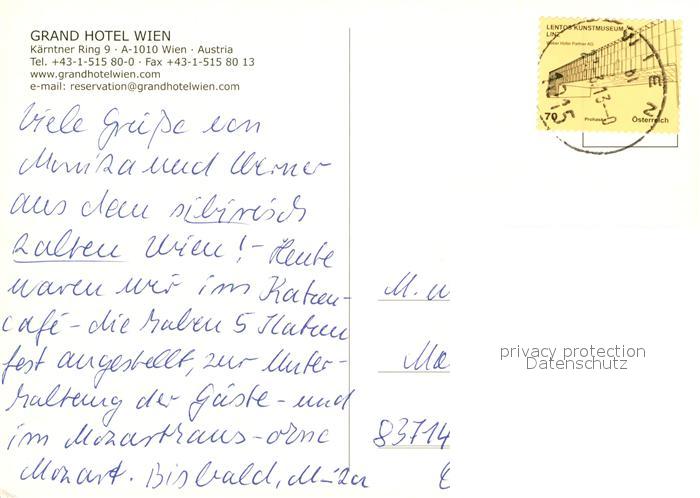 GRAND HOTEL WIEN
Kärntner Ring 9 · A-1010 Wien · Austria
Tel. +43-1-515 80-0 · Fax +43-1-515 80 13
www.grandhotelwien.com
e-mail: reservation@grandhotelwien.com
LENTOS KUNSTMUSEUM
LINZ
Weber Hofer Partner AG
70
Prohaska
Österreich
WIEN
1215
Viele Grüße von
Monika und Werner
aus dem sibirisch
kalten Wien! - Heute
waren wir im Katzen-
café - die haben 5 Katzen
fest angestellt, zur Unter-
haltung der Gäste - und
im Mozarthaus - ohne
Mozart. Bis bald,
M. u
Ma
83714
privacy protection
Datenschutz